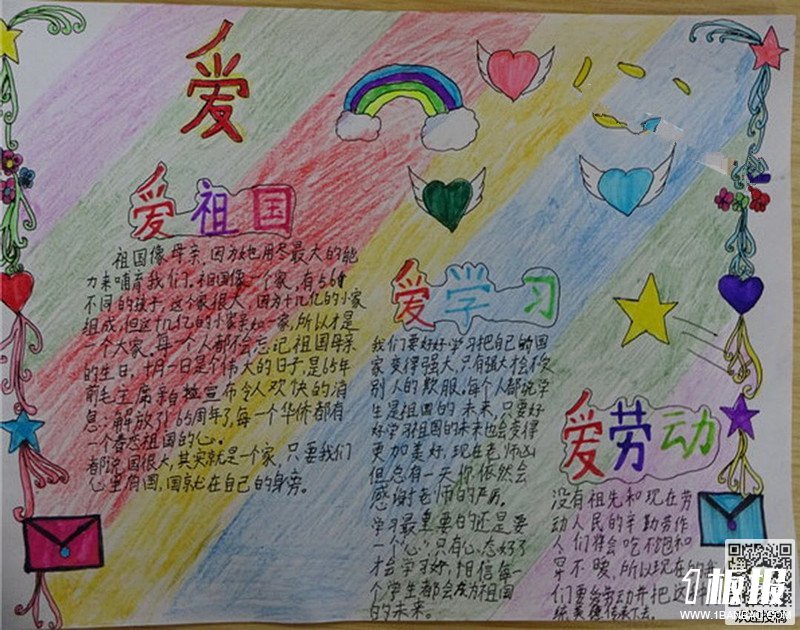 爱
爱祖国
祖国像母亲,因为她用尽最大的能
力来哺育我们。祖国像一个家,有56个
不同的孩子,这个家很大,因为十几亿的小家
组成,但这十几亿的小家亲如一家,所以才是
一个大家。每一个人都不会忘记祖国母亲
的生日,十月一日是个伟大的日子,是65年
前毛主席亲自宣布令人欢快的消
息:解放了!65周年了,每一个华侨都有
一个眷恋祖国的心。
都说国很大,其实就是一个家,只要我们
心里有国,国就在自己的身旁。
爱学习
我们要好好学习把自己的国
家变得强大,只有强大才会不受
别人的欺服。每个人都说学
生是祖国的未来,只要好
好学习祖国的未来也会变得
更加美好,现在老师凶
但总有一天你依然会
感谢老师的严厉。
学习最重要的还是要
一个“心”,只有心态好了
才会学习好,相信每一
个学生都会成为祖国
的未来。
爱劳动
没有祖先和现在劳
动人民的辛勤劳作
人们将会吃不饱和
穿不暖,所以现在
们要爱劳动并把这
统美德传承下去。
1板报
WWW.1BANBAO.COM
欢迎投稿